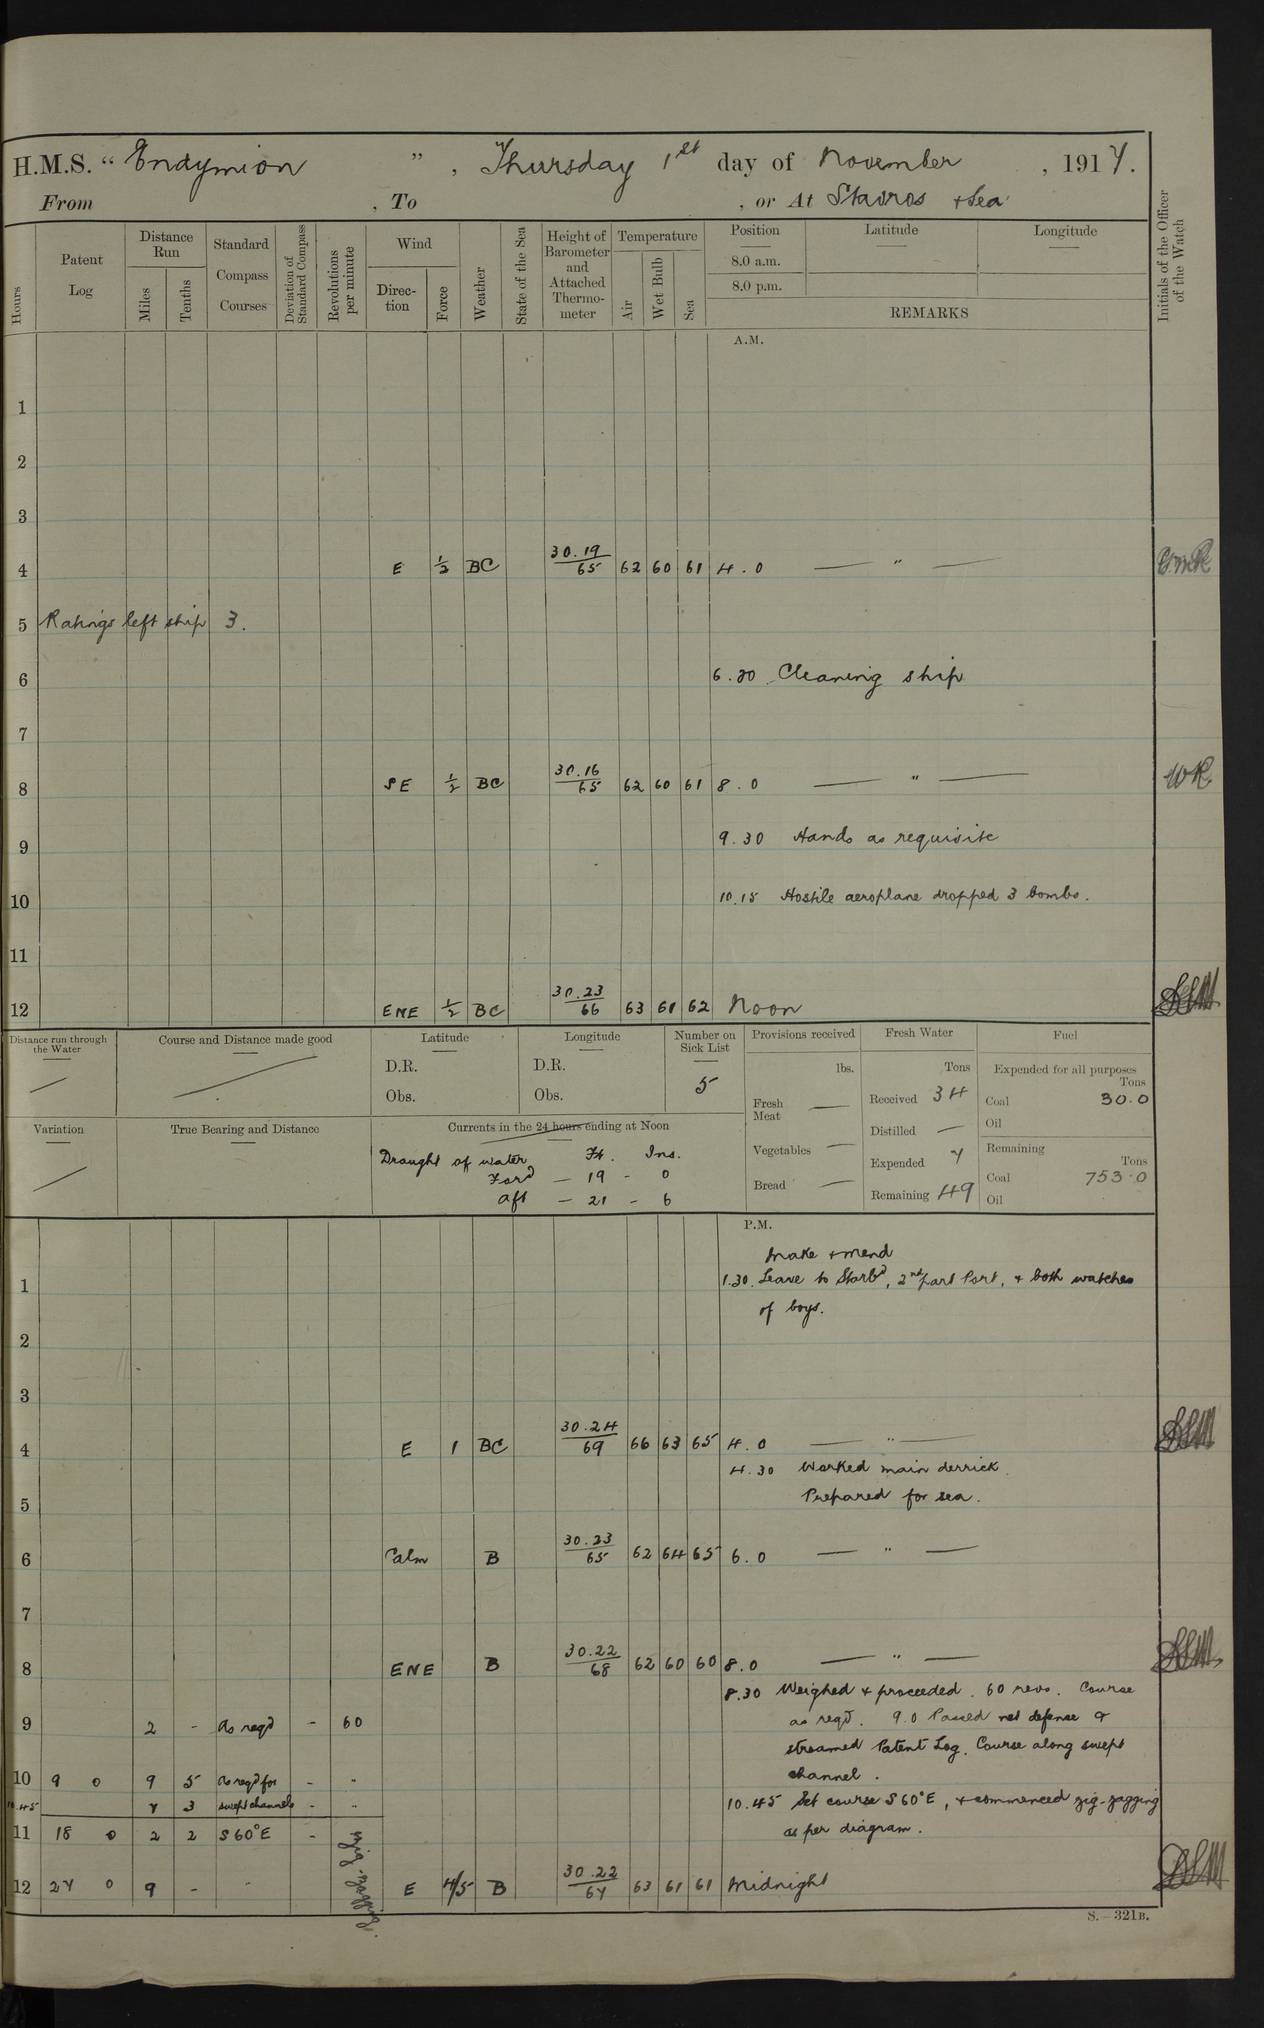 H.M.S. " Endymion ", Thursday 1st day of November, 1917.
From , To , or At Stavros & Sea
Hours
Patent Log
Distance Run
Miles
Tenths
Standard Compass Courses
Deviation of Standard Compass
Revolutions per minute
Wind
Direction
Force
Weather
State of the Sea
Height of Barometer and Attached Thermometer
Temperature
Air
Wet Bulb
Sea
Position
8.0 a.m.
8.0 p.m.
Latitude
Longitude
REMARKS
Initials of the Officer of the Watch
A.M.
1
2
3
4 E 1/2 BC 30.19/65 62 60 61 4.0 — " —
5 Ratings left ship 3.
6 6.30 Cleaning ship
7
8 SE 1/2 BC 30.16/65 62 60 61 8.0 — " — WR
9 9.30 Hands as requisite
10 10.15 Hostile aeroplane dropped 3 bombs.
11
12 ENE 1/2 BC 30.23/66 63 61 62 Noon
Distance run through the Water
Course and Distance made good
Latitude
D.R.
Obs.
Longitude
D.R.
Obs.
Number on Sick List
5
Provisions received
lbs.
Fresh Meat —
Vegetables —
Bread —
Fresh Water
Tons
Received 34
Distilled —
Expended 7
Remaining 49
Fuel
Expended for all purposes
Tons
Coal 30.0
Oil
Remaining
Tons
Coal 753.0
Oil
Variation
True Bearing and Distance
Currents in the 24 hours ending at Noon
Draught of water Ft. Ins.
Ford — 19 - 0
Aft — 21 - 6
P.M.
Make & mend
1 1.30. Leave to Starbd, 2nd part Port, & both watches
of boys.
2
3
4 E 1 BC 30.24/69 66 63 65 4.0 — " —
4.30 Worked main derrick
Prepared for sea.
5
6 Calm B 30.23/65 62 64 65 6.0 — " —
7
8 ENE B 30.22/68 62 60 60 8.0 — " —
8.30 Weighed & proceeded. 60 revs. Course
9 2 - As reqd - 60 as reqd. 9.0 Passed net defense &
streamed Patent Log. Course along swept
10 9 0 9 5 As reqd for - " channel.
10.45 7 3 swept channels - " 10.45 Set course S60°E, & commenced zig-zagging
11 18 0 2 2 S60°E - zig-zagging. as per diagram.
12 27 0 9 - " E 4/5 B 30.22/67 63 61 61 Midnight
S.—321B.